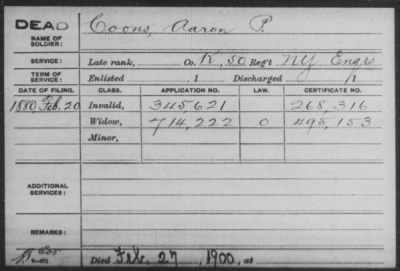 DEAD
NAME OF SOLDIER: Coons, Aaron P.
SERVICE: Late rank, Co. K, 50 Reg't NY Engrs
TERM OF SERVICE: Enlisted , 1 Discharged , 1
DATE OF FILING. CLASS. APPLICATION NO. LAW. CERTIFICATE NO.
1880 Feb. 20 Invalid, 345,621 268,316
Widow, 714,222 0 495,153
Minor,
ADDITIONAL SERVICES:
REMARKS:
Died Feb. 27, 1900, at